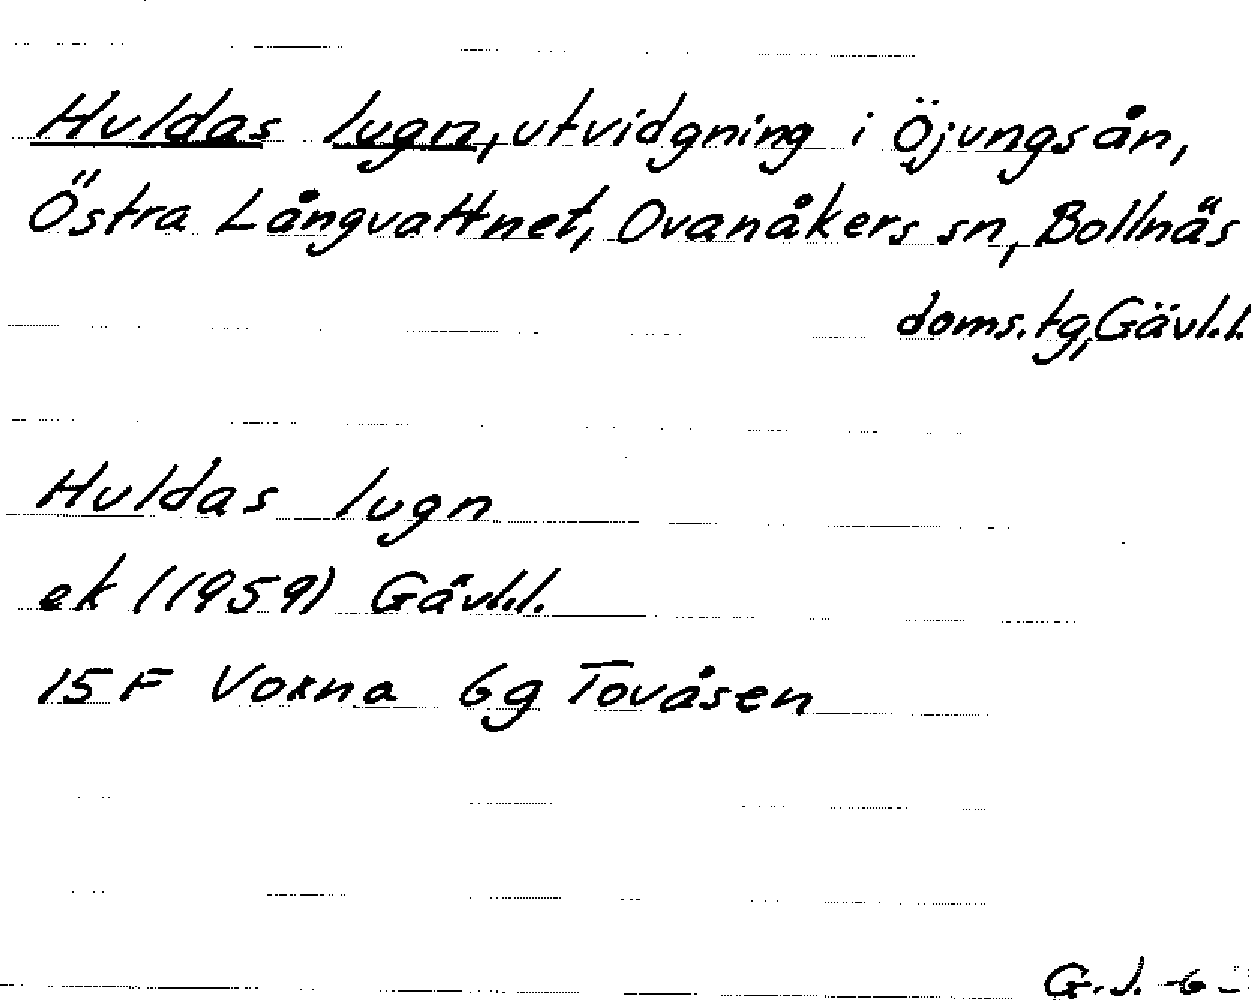 Huldas lugn, utvidgning i Öjungsån,
Östra Långvattnet, Ovanåkers sn, Bollnäs
doms.tg, Gävl.l.
Huldas lugn
ek (1959) Gävl.l.
15 F Voxna 6g Tovåsen
G.J. -6